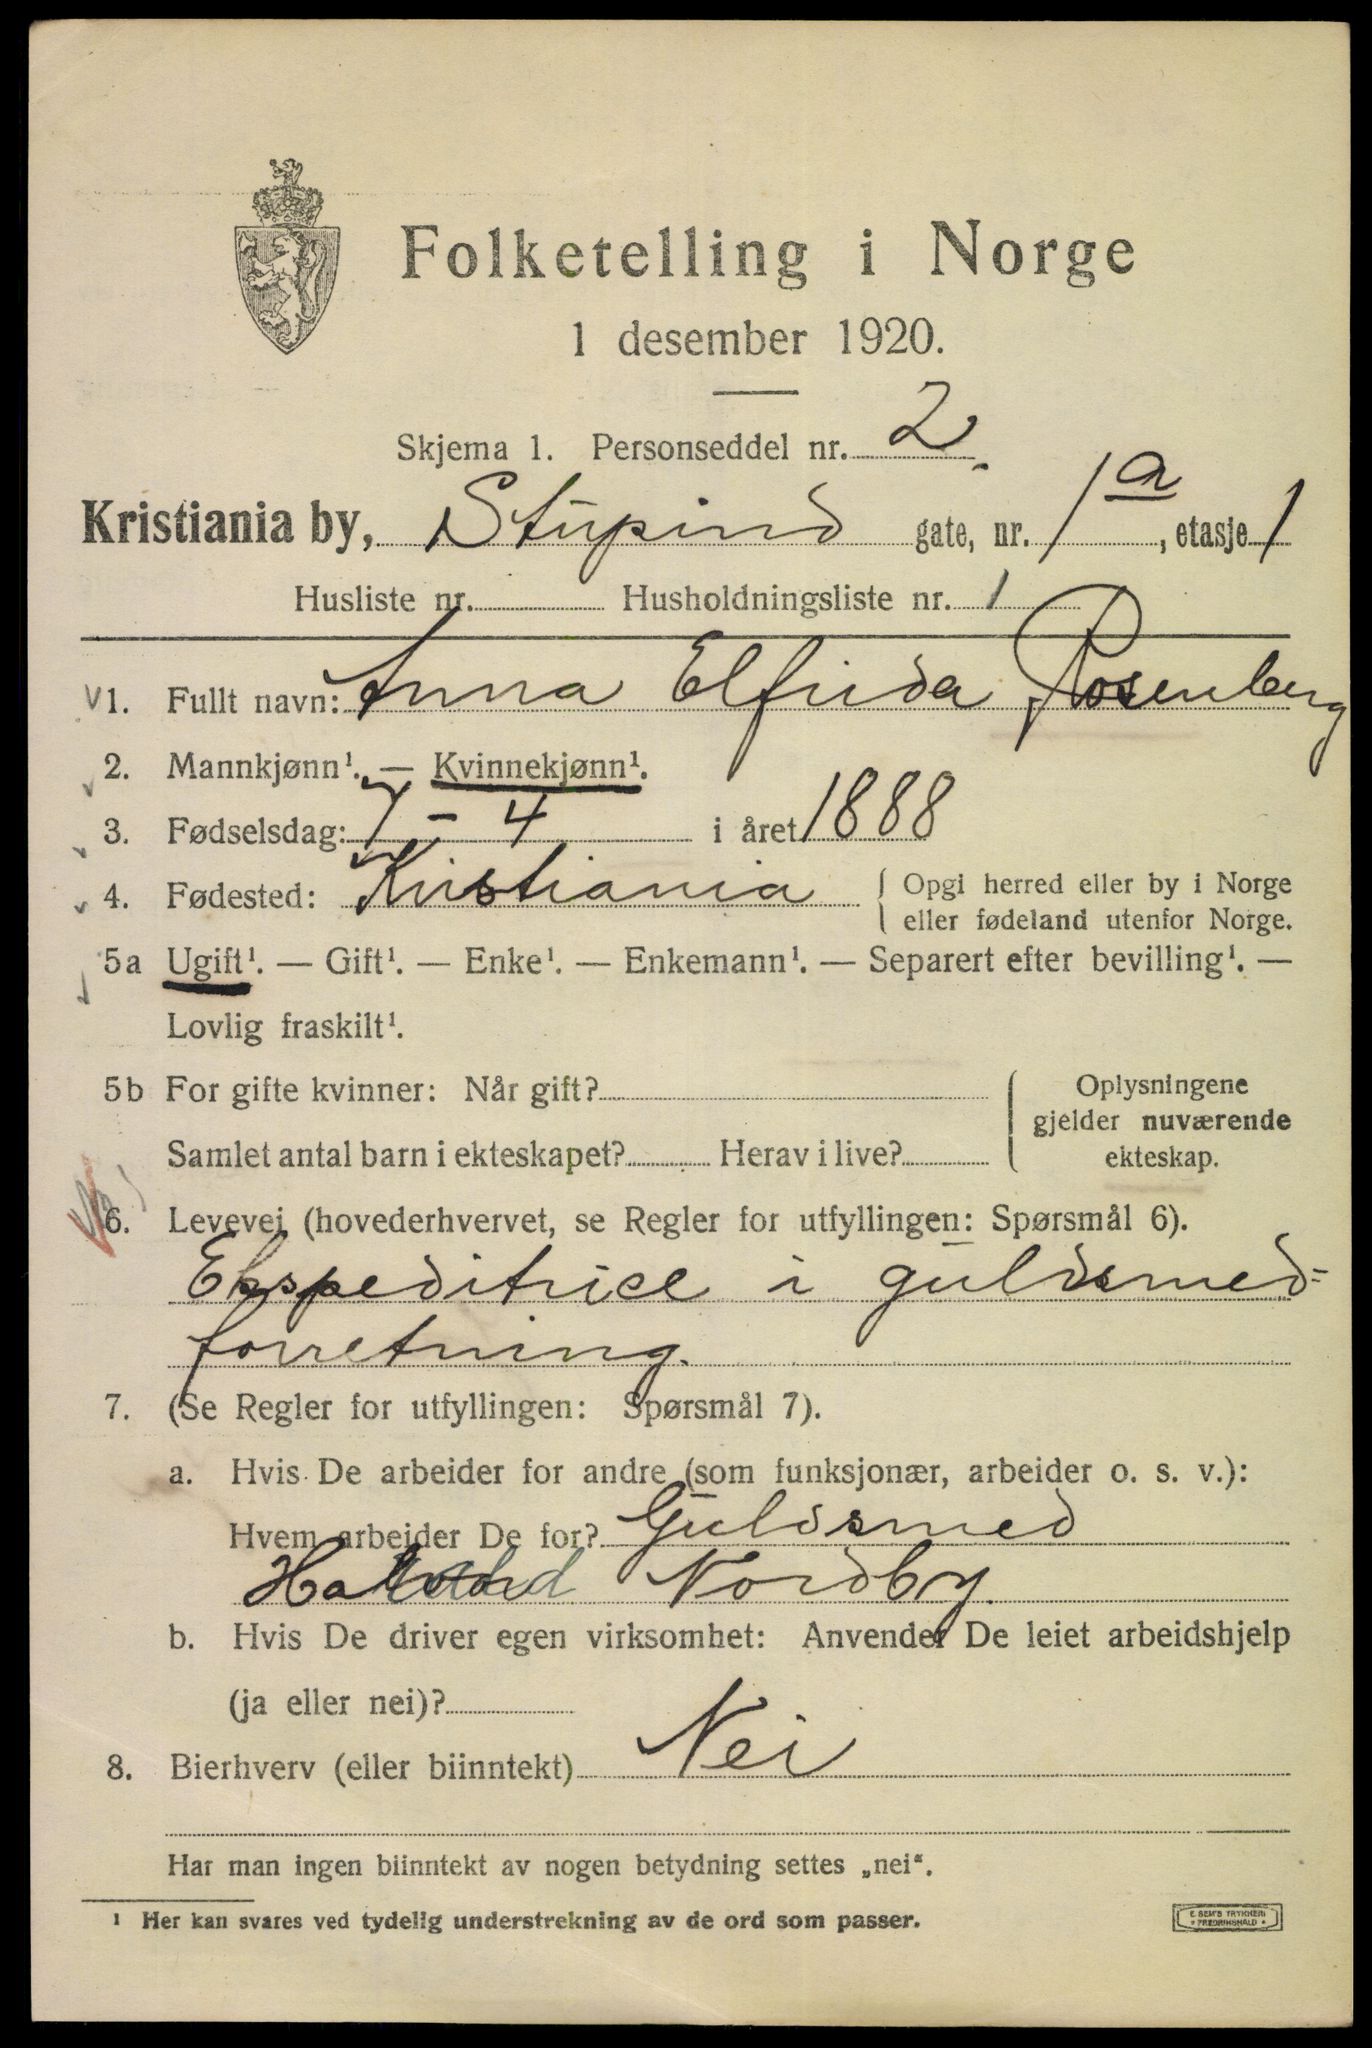 Folketelling i Norge
1 desember 1920.
Skjema 1. Personseddel nr. 2.
Kristiania by, Stupind gate, nr. 1a, etasje 1
Husliste nr. Husholdningsliste nr. 1
1. Fullt navn: Anna Elfrida Rosenberg
2. Mannkjønn¹. — Kvinnekjønn¹.
3. Fødselsdag: 7 - 4 i året 1888
4. Fødested: Kristiania { Opgi herred eller by i Norge
eller fødeland utenfor Norge.
5a Ugift¹. — Gift¹. — Enke¹. — Enkemann¹. — Separert efter bevilling¹. —
Lovlig fraskilt¹.
5b For gifte kvinner: Når gift? { Oplysningene
gjelder nuværende
Samlet antal barn i ekteskapet? Herav i live? ekteskap.
6. Levevei (hovederhvervet, se Regler for utfyllingen: Spørsmål 6).
Ekspeditrice i guldsmed=
forretning.
7. (Se Regler for utfyllingen: Spørsmål 7).
a. Hvis De arbeider for andre (som funksjonær, arbeider o. s. v.):
Hvem arbeider De for? Guldsmed
Nordby.
b. Hvis De driver egen virksomhet: Anvender De leiet arbeidshjelp
(ja eller nei)?
8. Bierhverv (eller biinntekt) Nei
Har man ingen biinntekt av nogen betydning settes „nei“.
¹ Her kan svares ved tydelig understrekning av de ord som passer.
E SEM'S TRYKKERI
• FREDRIKSHALD •